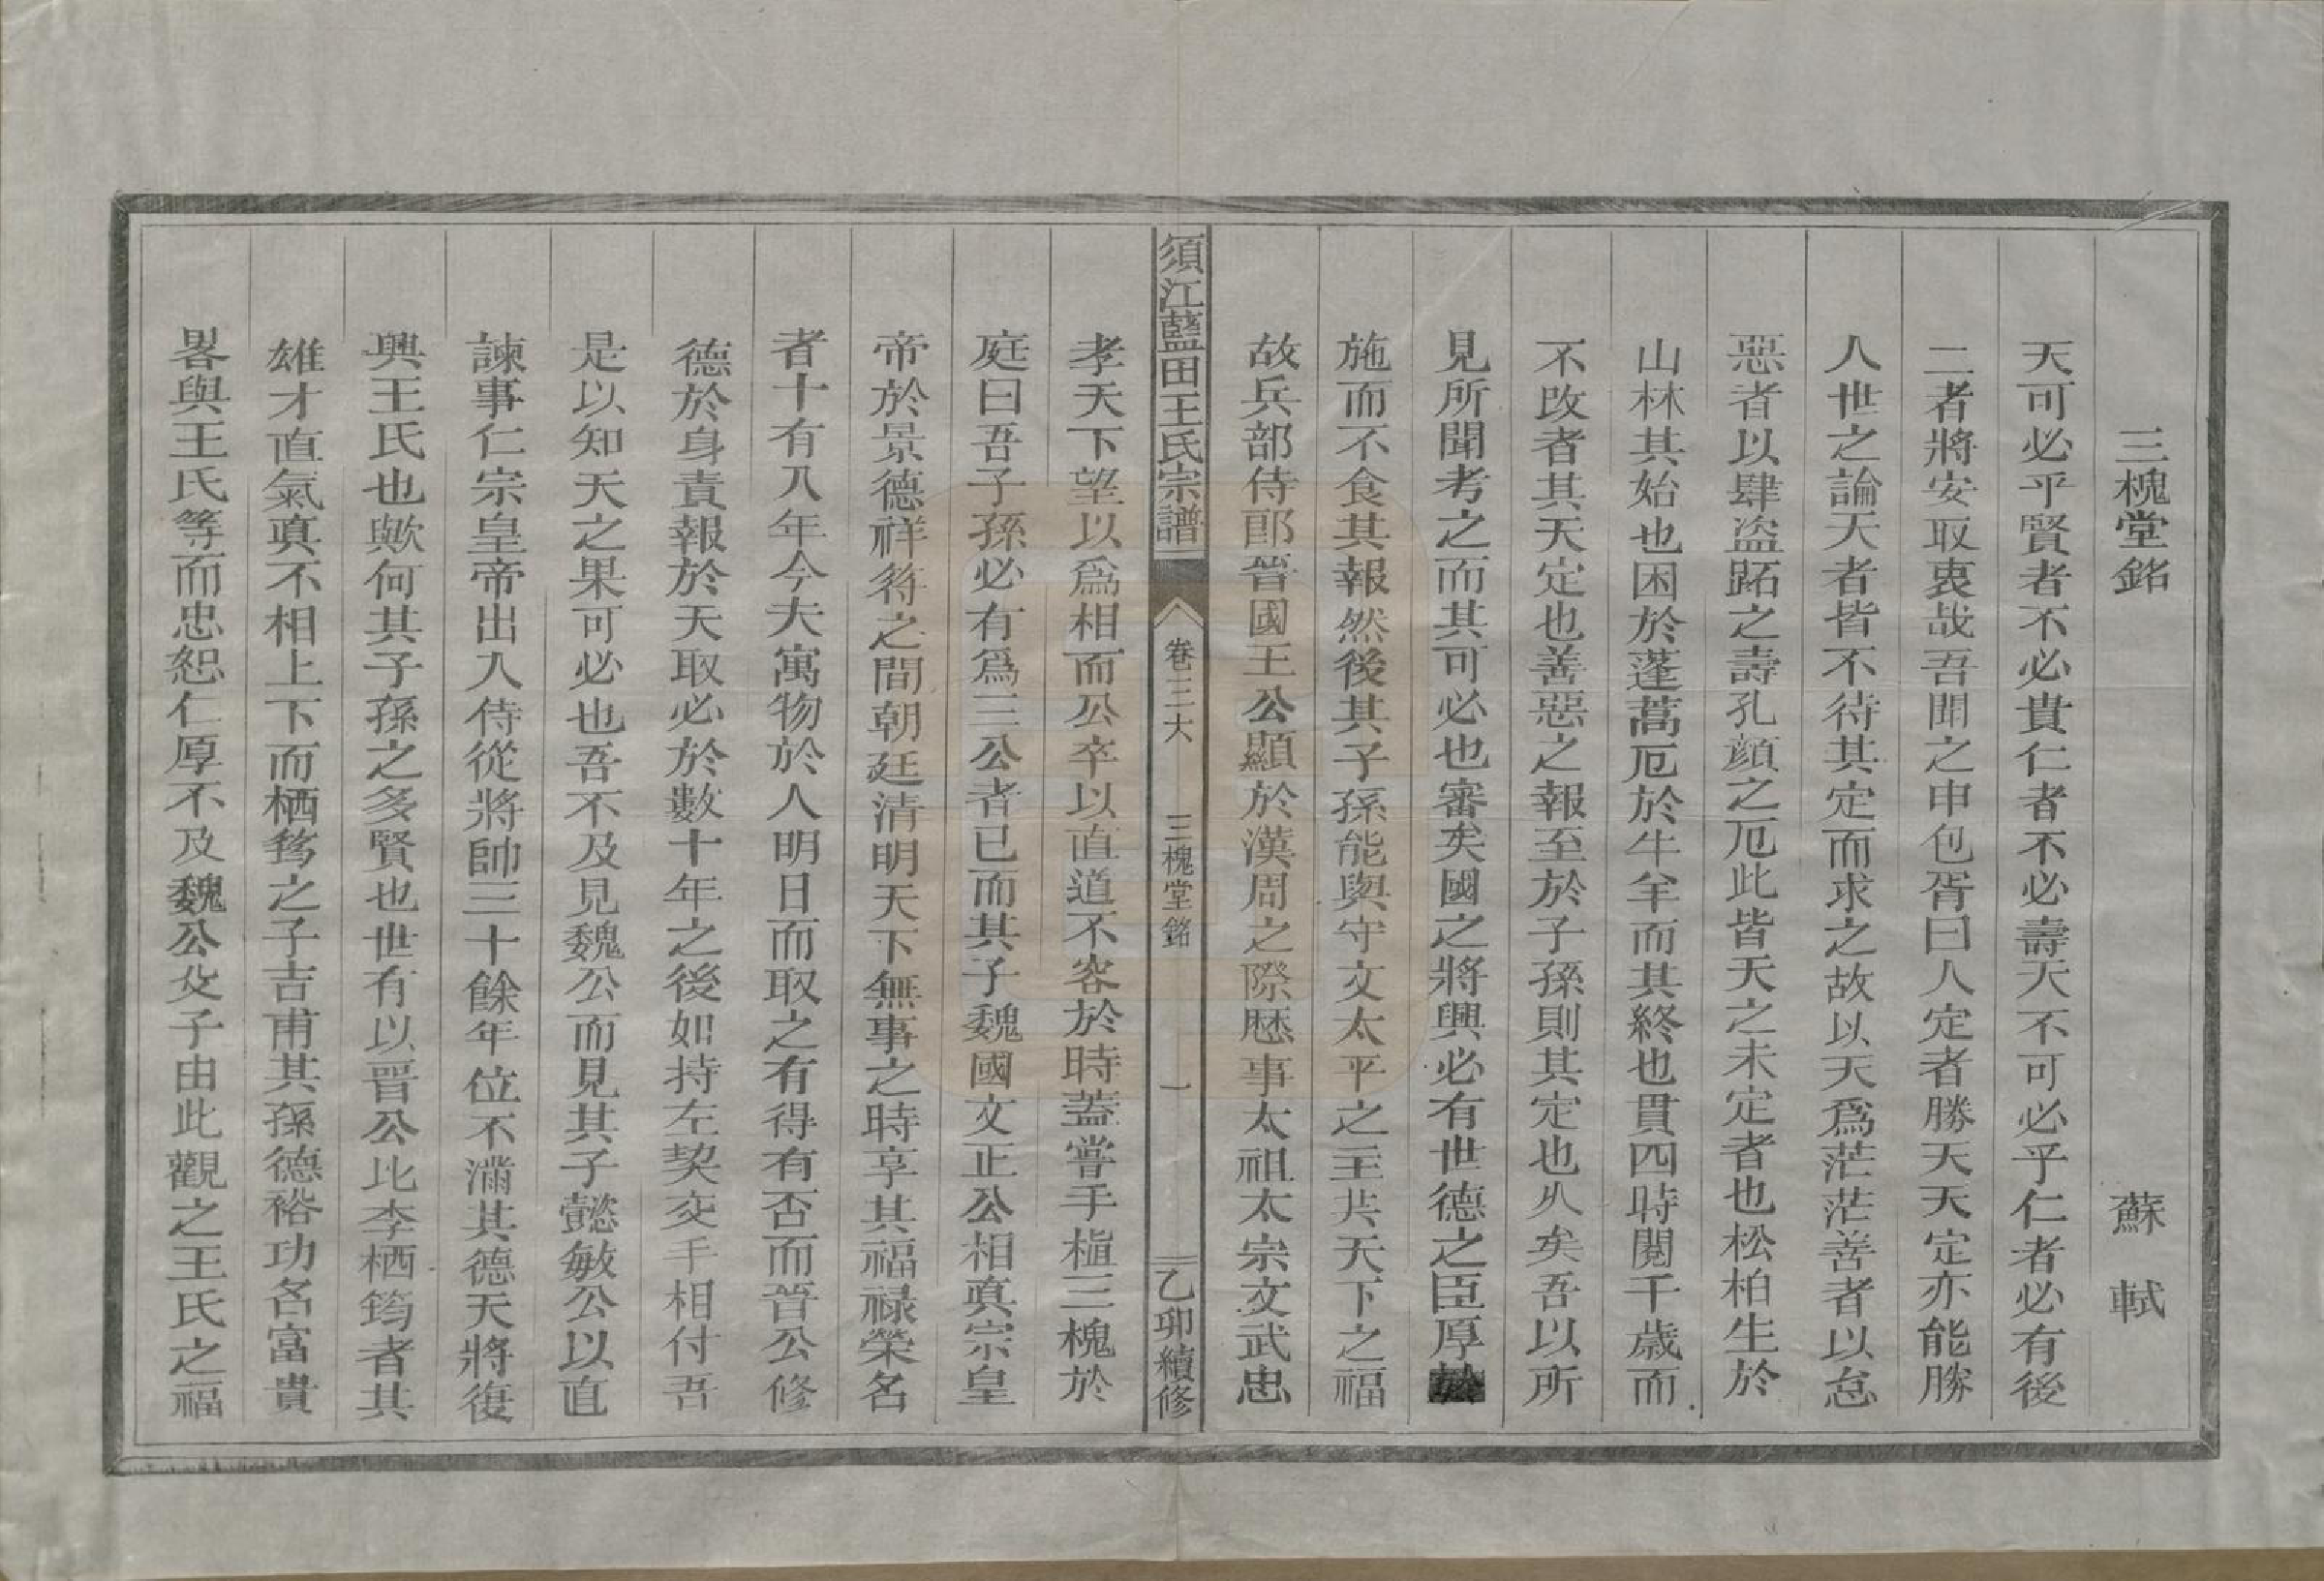 三槐堂銘　蘇軾
天可必乎賢者不必貴仁者不必壽天不可必乎仁者必有後
二者將安取衷哉吾聞之申包胥曰人定者勝天天定亦能勝
人世之論天者皆不待其定而求之故以天爲茫茫善者以怠
惡者以肆盜跖之壽孔顔之厄此皆天之未定者也松柏生於
山林其始也困於蓬蒿厄於牛羊而其終也貫四時閱千歲而
不改者其天定也善惡之報至於子孫則其定也久矣吾以所
見所聞考之而其可必也審矣國之將興必有世德之臣厚於
施而不食其報然後其子孫能與守文太平之主共天下之福
故兵部侍郎晉國王公顯於漢周之際歷事太祖太宗文武忠
須江藍田王氏宗譜　卷三大　三槐堂銘　一　乙卯續修
孝天下望以爲相而公卒以直道不容於時蓋嘗手植三槐於
庭曰吾子孫必有爲三公者已而其子魏國文正公相真宗皇
帝於景德祥符之間朝廷清明天下無事之時享其福祿榮名
者十有八年今夫寓物於人明日而取之有得有否而晉公修
德於身責報於天取必於數十年之後如持左契交手相付吾
是以知天之果可必也吾不及見魏公而見其子懿敏公以直
諫事仁宗皇帝出入侍從將帥三十餘年位不滿其德天將復
興王氏也歟何其子孫之多賢也世有以晉公比李栖筠者其
雄才直氣真不相上下而栖筠之子吉甫其孫德裕功名富貴
畧與王氏等而忠恕仁厚不及魏公父子由此觀之王氏之福